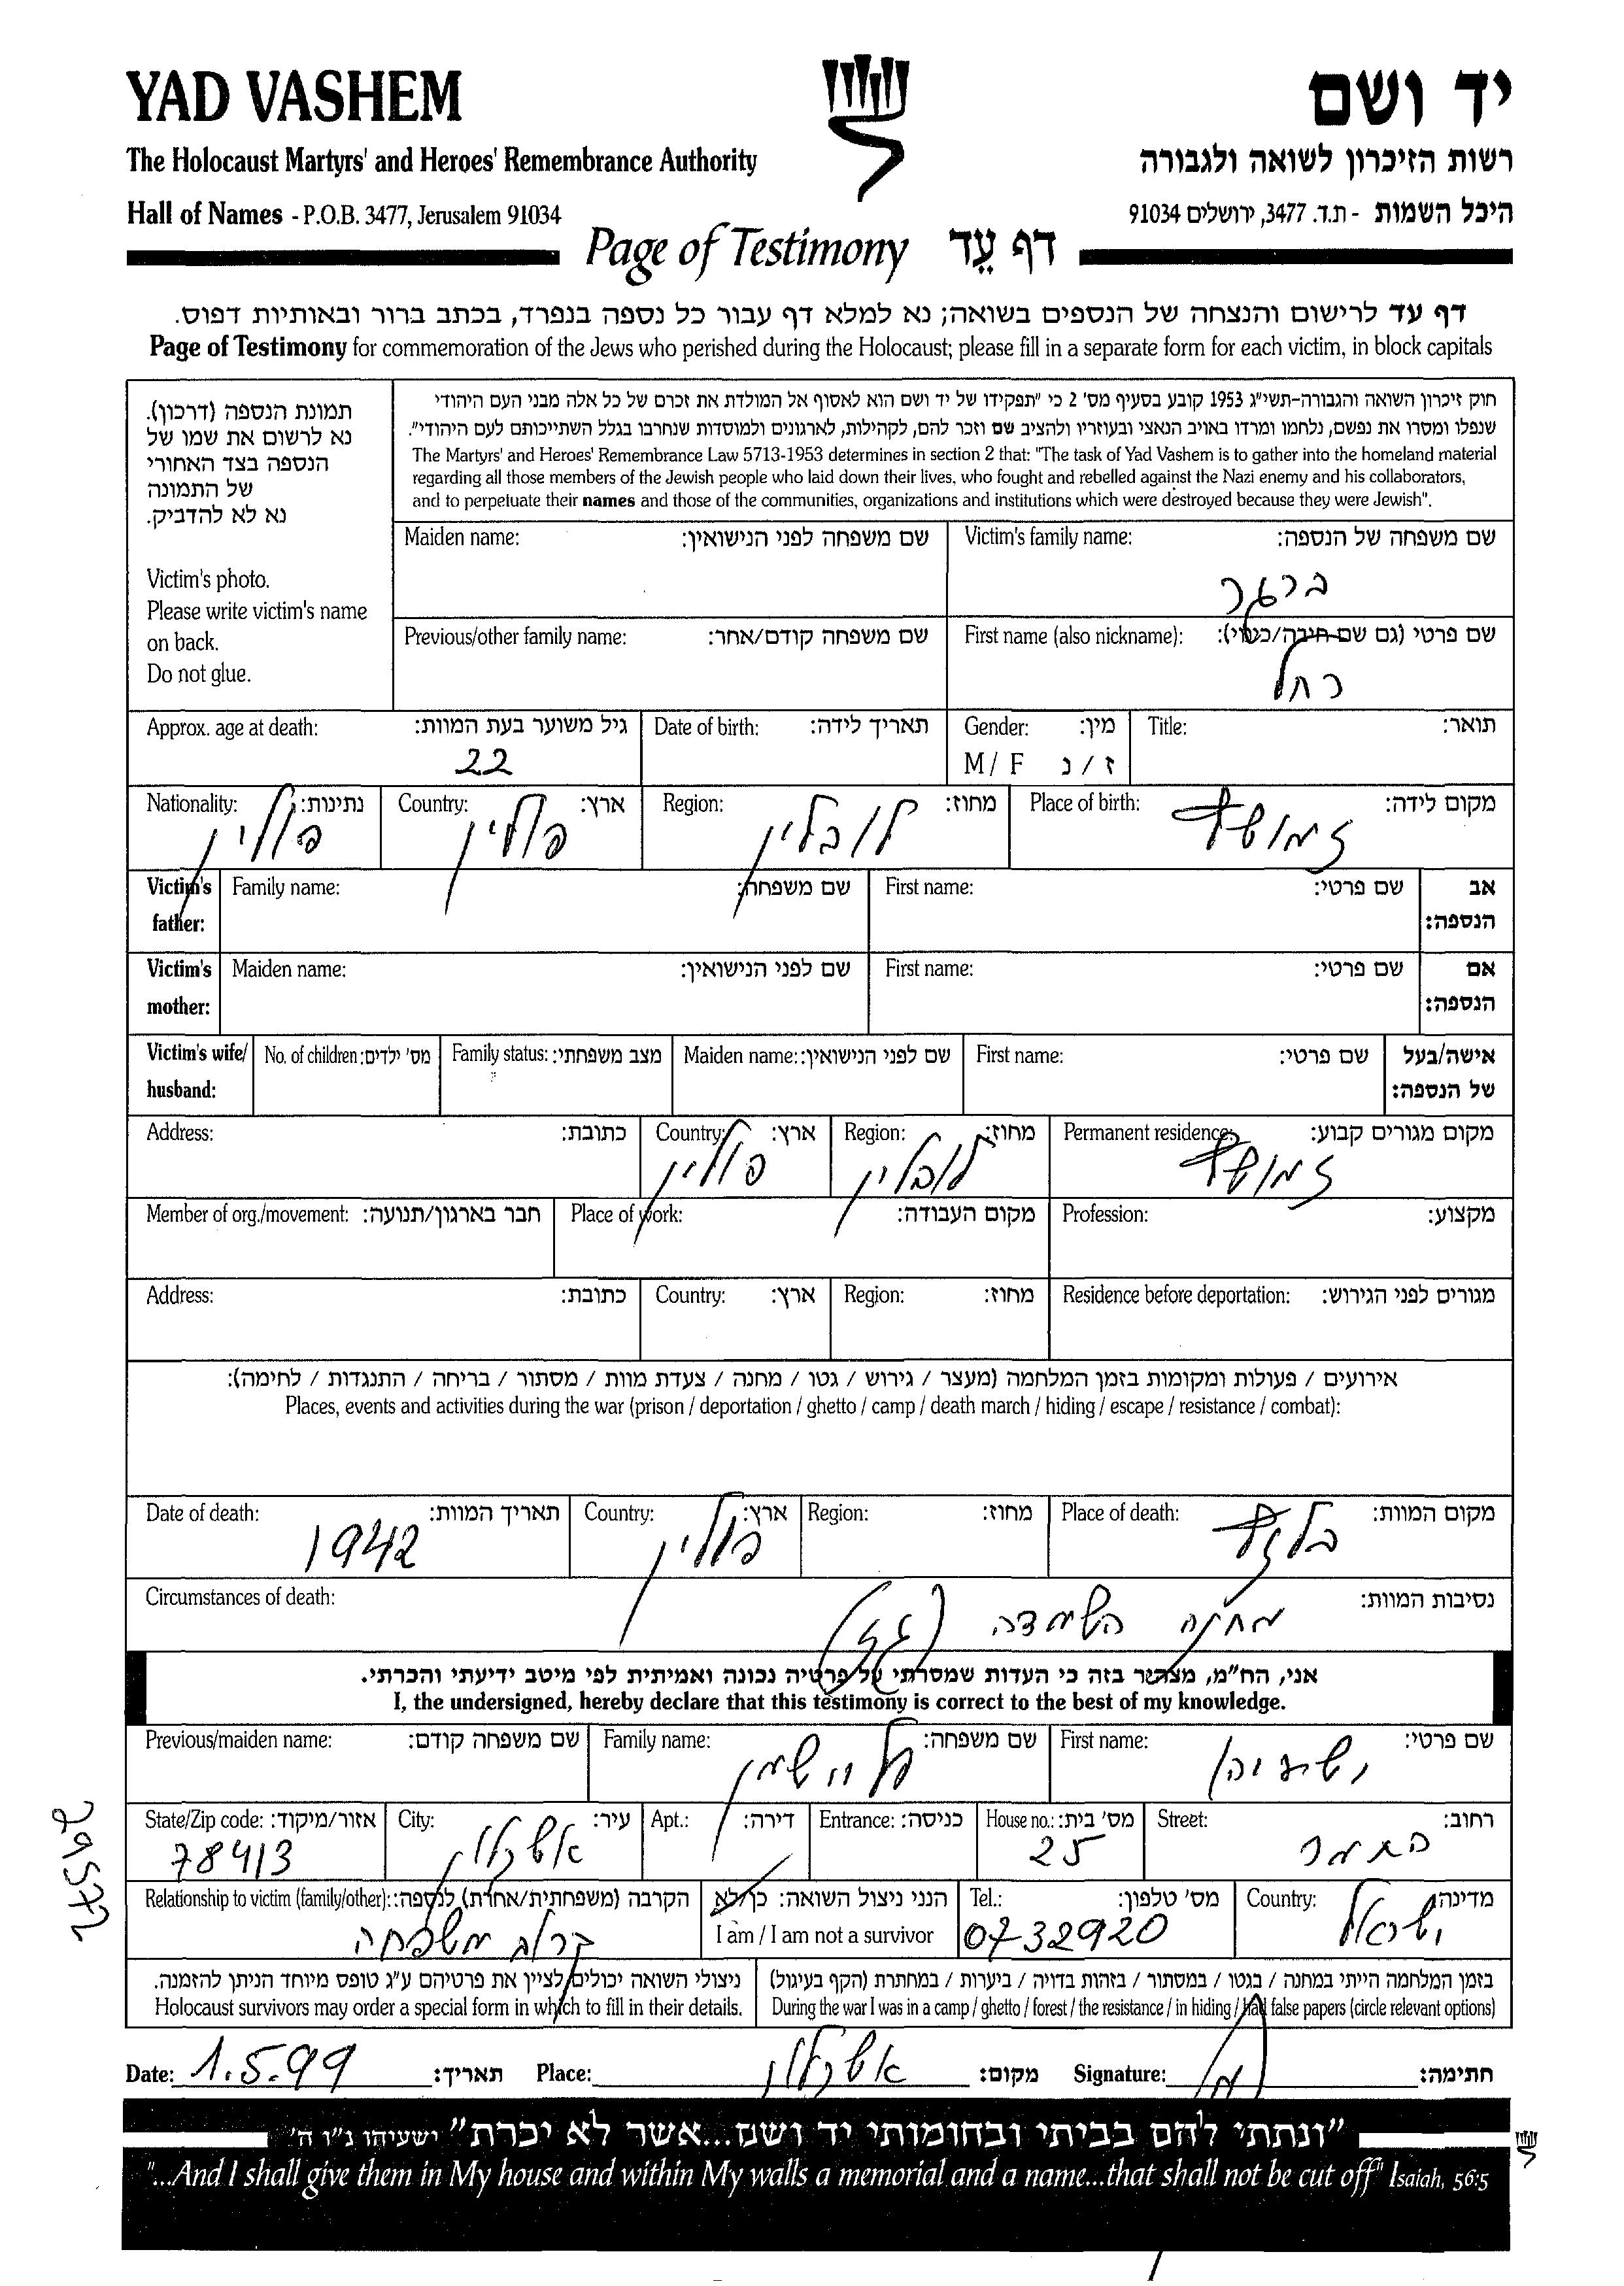 YAD VASHEM
יד ושם
The Holocaust Martyrs' and Heroes' Remembrance Authority
רשות הזיכרון לשואה ולגבורה
Hall of Names - P.O.B. 3477, Jerusalem 91034
היכל השמות - ת.ד. 3477, ירושלים 91034
Page of Testimony דף עֵד
דף עד לרישום והנצחה של הנספים בשואה; נא למלא דף עבור כל נספה בנפרד, בכתב ברור ובאותיות דפוס.
Page of Testimony for commemoration of the Jews who perished during the Holocaust; please fill in a separate form for each victim, in block capitals
תמונת הנספה (דרכון).
נא לרשום את שמו של
הנספה בצד האחורי
של התמונה
נא לא להדביק.
Victim's photo.
Please write victim's name
on back.
Do not glue.
חוק זיכרון השואה והגבורה-תשי"ג 1953 קובע בסעיף מס' 2 כי "תפקידו של יד ושם הוא לאסוף אל המולדת את זכרם של כל אלה מבני העם היהודי
שנפלו ומסרו את נפשם, נלחמו ומרדו באויב הנאצי ובעוזריו ולהציב שם וזכר להם, לקהילות, לארגונים ולמוסדות שנחרבו בגלל השתייכותם לעם היהודי".
The Martyrs' and Heroes' Remembrance Law 5713-1953 determines in section 2 that: "The task of Yad Vashem is to gather into the homeland material
regarding all those members of the Jewish people who laid down their lives, who fought and rebelled against the Nazi enemy and his collaborators,
and to perpetuate their names and those of the communities, organizations and institutions which were destroyed because they were Jewish".
Victim's family name: שם משפחה של הנספה: Maiden name: שם משפחה לפני הנישואין:
ברגר
First name (also nickname): שם פרטי (גם שם חיבה/כינוי): Previous/other family name: שם משפחה קודם/אחר:
רחל
Title: תואר: Gender: מין: Date of birth: תאריך לידה: Approx. age at death: גיל משוער בעת המוות:
M / F ז / נ 22
Place of birth: מקום לידה: Region: מחוז: Country: ארץ: Nationality: נתינות:
זמושץ לובלין פולין פולין
Victim's father: אב הנספה: First name: שם פרטי: Family name: שם משפחה:
Victim's mother: אם הנספה: First name: שם פרטי: Maiden name: שם לפני הנישואין:
Victim's wife/ husband: אישה/בעל של הנספה: First name: שם פרטי: Maiden name: שם לפני הנישואין: Family status: מצב משפחתי: No. of children: מס' ילדים:
Permanent residence: מקום מגורים קבוע: Region: מחוז: Country: ארץ: Address: כתובת:
זמושץ לובלין פולין
Profession: מקצוע: Place of work: מקום העבודה: Member of org./movement: חבר בארגון/תנועה:
Residence before deportation: מגורים לפני הגירוש: Region: מחוז: Country: ארץ: Address: כתובת:
אירועים / פעולות ומקומות בזמן המלחמה (מעצר / גירוש / גטו / מחנה / צעדת מוות / מסתור / בריחה / התנגדות / לחימה):
Places, events and activities during the war (prison / deportation / ghetto / camp / death march / hiding / escape / resistance / combat):
Place of death: מקום המוות: Region: מחוז: Country: ארץ: Date of death: תאריך המוות:
בלזץ פולין 1942
Circumstances of death: נסיבות המוות:
מחנה השמדה (גז)
אני, הח"מ, מצהיר בזה כי העדות שמסרתי על פרטיה נכונה ואמיתית לפי מיטב ידיעתי והכרתי.
I, the undersigned, hereby declare that this testimony is correct to the best of my knowledge.
First name: שם פרטי: Family name: שם משפחה: Previous/maiden name: שם משפחה קודם:
ישעיהו
Street: רחוב: House no.: מס' בית: Entrance: כניסה: Apt.: דירה: City: עיר: State/Zip code: אזור/מיקוד:
התמר 25 אשקלון 78413
Country: מדינה: Tel.: מס' טלפון: הנני ניצול השואה: כן/לא Relationship to victim (family/other): הקרבה (משפחתית/אחרת) לנספה:
I am / I am not a survivor
ישראל 0732920 קרוב משפחה
בזמן המלחמה הייתי במחנה / בגטו / במסתור / בזהות בדויה / ביערות / במחתרת (הקף בעיגול)
During the war I was in a camp / ghetto / forest / the resistance / in hiding / had false papers (circle relevant options)
ניצולי השואה יכולים לציין את פרטיהם ע"ג טופס מיוחד הניתן להזמנה.
Holocaust survivors may order a special form in which to fill in their details.
Date: 1.5.99 תאריך: Place: אשקלון מקום: Signature: חתימה:
"ונתתי להם בביתי ובחומותי יד ושם...אשר לא יכרת" ישעיהו נ"ו ה'
"...And I shall give them in My house and within My walls a memorial and a name...that shall not be cut off" Isaiah, 56:5